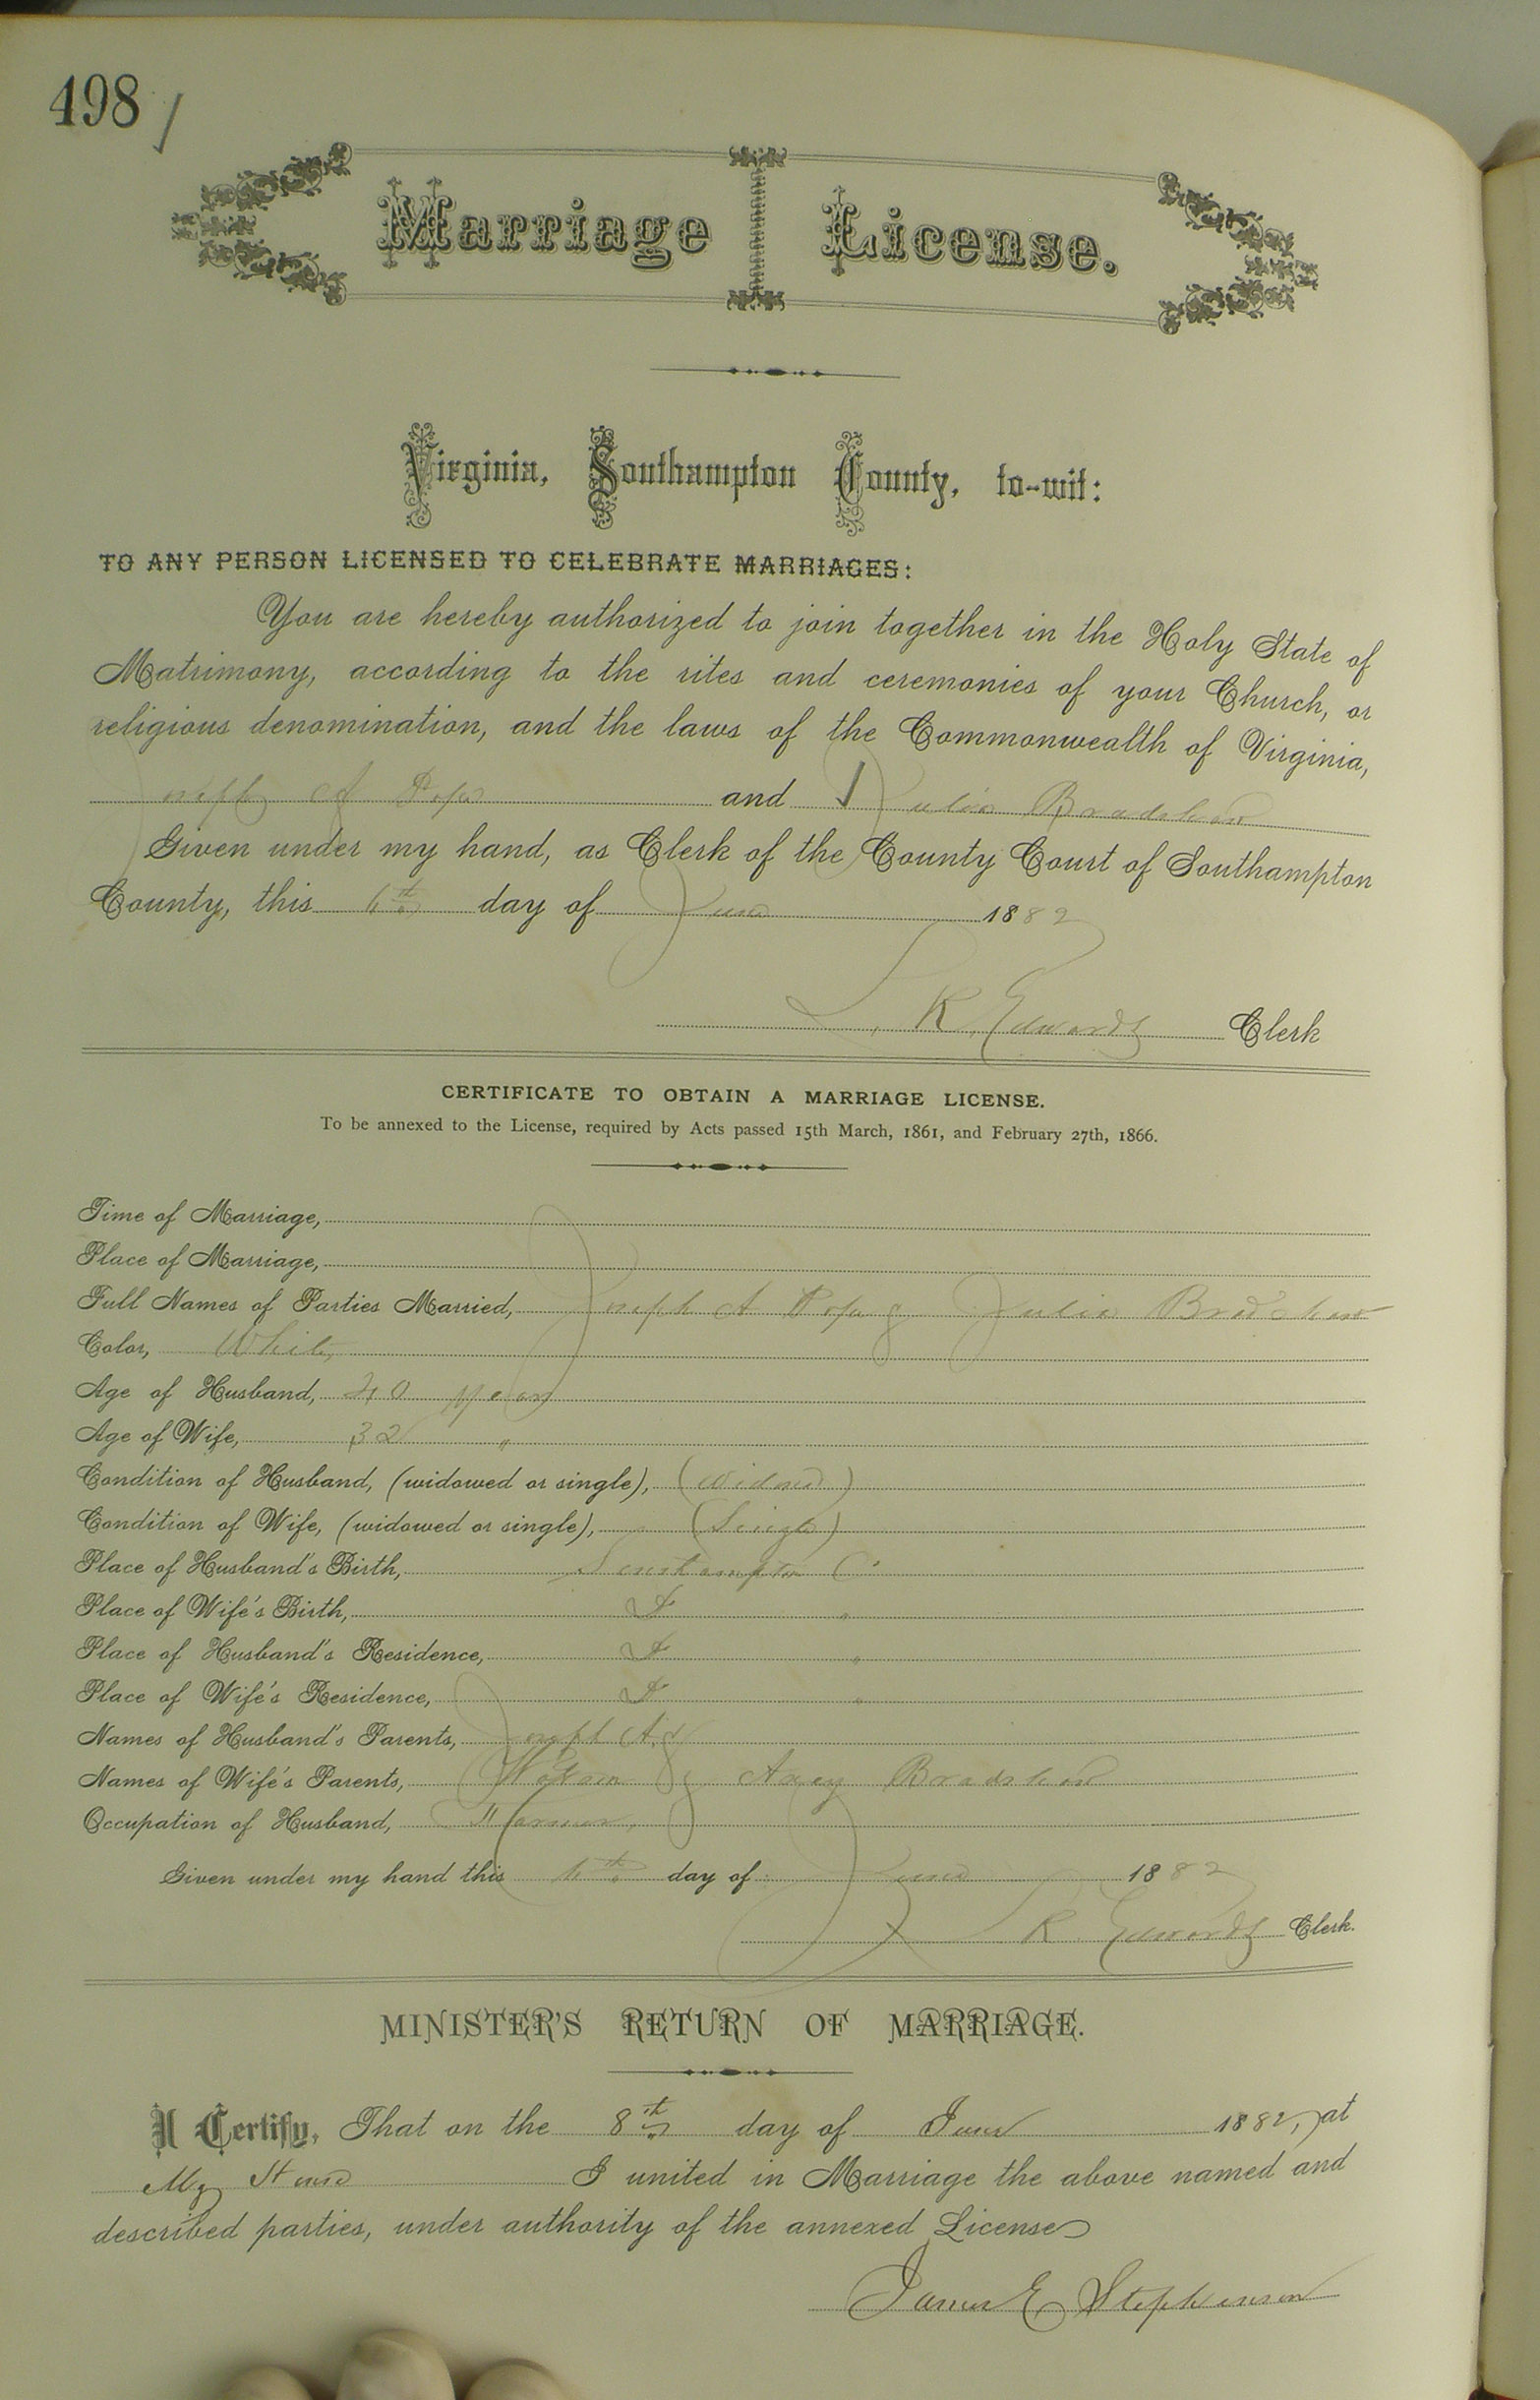 498
Marriage License.
Virginia, Southampton County, to-wit:
TO ANY PERSON LICENSED TO CELEBRATE MARRIAGES:
You are hereby authorized to join together in the Holy State of
Matrimony, according to the rites and ceremonies of your Church, or
religious denomination, and the laws of the Commonwealth of Virginia,
Joseph A Pope and Julia Bradshaw
Given under my hand, as Clerk of the County Court of Southampton
County, this 6th day of June 1882
L. R. Edwards Clerk
CERTIFICATE TO OBTAIN A MARRIAGE LICENSE.
To be annexed to the License, required by Acts passed 15th March, 1861, and February 27th, 1866.
Time of Marriage,
Place of Marriage,
Full Names of Parties Married, Joseph A Pope & Julia Bradshaw
Color, White
Age of Husband, 40 years
Age of Wife, 32 "
Condition of Husband, (widowed or single), (Widowed)
Condition of Wife, (widowed or single), (Single)
Place of Husband's Birth, Southampton Co
Place of Wife's Birth, "
Place of Husband's Residence, "
Place of Wife's Residence, "
Names of Husband's Parents, Joseph A. &
Names of Wife's Parents, & Bradshaw
Occupation of Husband, Farmer,
Given under my hand this 6th day of June 1882
L R Edwards Clerk.
MINISTER'S RETURN OF MARRIAGE.
I Certify, That on the 8th day of June 1882, at
My House I united in Marriage the above named and
described parties, under authority of the annexed License
James E Stephenson